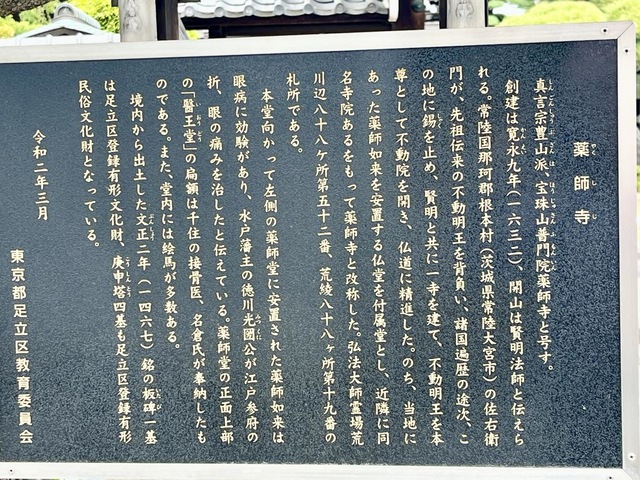 薬師寺
真言宗豊山派、宝珠山普門院薬師寺と号す。
創建は寛永九年（一六三二）、開山は賢明法師と伝えら
れる。常陸国那珂郡根本村（茨城県常陸大宮市）の佐右衛
門が、先祖伝来の不動明王を背負い、諸国遍歴の途次、こ
の地に錫を止め、賢明と共に一寺を建て、不動明王を本
尊として不動院を開き、仏道に精進した。のち、当地に
あった薬師如来を安置する仏堂を付属堂とし、近隣に同
名寺院あるをもって薬師寺と改称した。弘法大師霊場荒
川辺八十八ヶ所第五十二番、荒綾八十八ヶ所第十九番の
札所である。
本堂向かって左側の薬師堂に安置された薬師如来は
眼病に効験があり、水戸藩主の徳川光圀公が江戸参府の
折、眼の痛みを治したと伝えている。薬師堂の正面上部
の「醫王堂」の扁額は千住の接骨医、名倉氏が奉納したも
のである。また、堂内には絵馬が多数ある。
境内から出土した文正二年（一四六七）銘の板碑一基
は足立区登録有形文化財、庚申塔四基も足立区登録有形
民俗文化財となっている。
令和二年三月
東京都足立区教育委員会